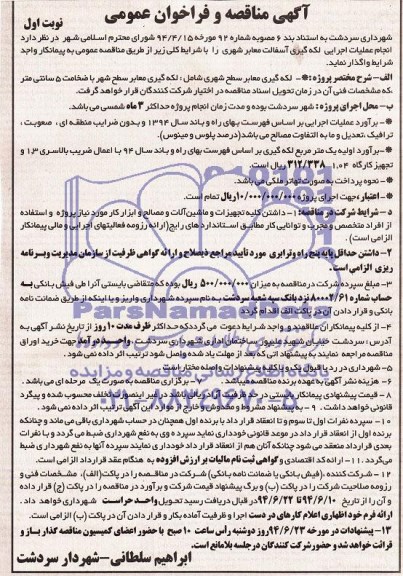 آگهی مناقصه و فراخوان عمومی
نوبت اول
شهرداری سردشت به استناد بند ۶ مصوبه شماره ۹۲ مورخه ۹۴/۴/۱۵ شورای محترم اسلامی شهر در نظر دارد
انجام عملیات اجرایی لکه گیری آسفالت معابر شهری را با شرایط کلی زیر از طریق مناقصه عمومی به پیمانکار واجد
شرایط واگذار نماید.
الف– شرح مختصر پروژه: *– لکه گیری معابر سطح شهری شامل : لکه گیری معابر سطح شهر با ضخامت ۵ سانتی متر
که مشخصات فنی آن در زمان تحویل اسناد مناقصه در اختیار شرکت کنندگان قرار خواهد گرفت.
ب– محل اجرای پروژه: شهر سردشت بوده و مدت زمان انجام پروژه حداکثر ۳ ماه شمسی می باشد.
*– برآورد عملیات اجرایی بر اساس فهرست بهای راه و باند سال ۱۳۹۴ و بدون ضرایب منطقه ای ، صعوبت ،
ترافیک ،تعدیل و ما به التفاوت مصالح می باشد(درصد پلوس و مینوس).
*– برآورد اولیه یک متر مربع لکه گیری بر اساس فهرست بهای راه و باند سال ۹۴ با اعمال ضریب بالاسری ۱.۳ و
تجهیز کارگاه ۱.۰۴ ۳۱۲/۳۳۸ ریال است.
*– نحوه پرداخت به صورت تهاتر ملکی می باشد.
*– اعتبار جهت اجرای پروژه ۱۰/۰۰۰/۰۰۰/۰۰۰ ریال تمام است.
د– شرایط شرکت در مناقصه: ۱– داشتن کلیه تجهیزات و ماشین آلات و مصالح و ابزار کار مورد نیاز پروژه و استفاده
از افراد متخصص و مجرب و توانایی کار مطابق استانداردهای رایج(ارائه رزومه فعالیتهای اجرایی و مالی پیمانکار
الزامی است)
۲– داشتن حداقل پایه پنج راه و ترابری مورد تأیید مراجع ذیصلاح و ارائه گواهی ظرفیت از سازمان مدیریت و برنامه
ریزی الزامی است.
۳– مبلغ سپرده شرکت درمناقصه به میزان ۵۰۰/۰۰۰/۰۰۰ ریال بوده که متقاضی بایستی آنرا طی فیش بانکی به
حساب شماره ۸۰۰۰۲/۶۱ نزد بانک سپه شعبه سردشت به نام سپرده شهرداری واریز و یا اینکه از طریق ضمانت نامه
بانکی و قرار دادن آن در پاکت الف اقدام گردد
۴– از کلیه پیمانکاران علاقمند و واجد شرایط دعوت می گرددکه حداکثر ظرف مدت ۱۰ روز از تاریخ نشر آگهی به
آدرس : سردشت خیابان شهید ساختمان اداری شهرداری سردشت واحد درآمد جهت خرید اوراق
مناقصه مراجعه نمایند به پیشنهاداتی که بعد از مهلت یاد شده وصل شود ترتیب اثر داده نمی شود.
۵– شهرداری در رد یا قبول یک یا کلیه پیشنهادات واصله مختار است.
۶– هزینه نشر آگهی به عهده برنده مناقصه میباشد. ۷– برگزاری مناقصه به صورت یک مرحله ای می باشد.
۸– قیمت پیشنهادی پیمانکار بایستی در حد ظرفیت قانونی آنها باشد، در غیر اینصورت تخلف محسوب شده و پیگرد
قانونی خواهد داشت. ۹– به پیشنهاد مشروط و مخدوش و خارج از موعد مندرج در این آگهی ترتیب اثر داده نمی شود.
۱۰– سپرده نفرات اول تا سوم و تا انعقاد قرار داد با برنده اول همچنان در حساب شهرداری باقی می ماند و چنانکه
برنده اول از انعقاد قرار داد در موعد قانونی خودداری نماید سپرده وی به نفع شهرداری ضبط می گردد و با نفرات
بعدی قرارداد منعقد می شود چنانکه آنان هم از انعقاد قرار داد خودداری نمایند سپرده آنها به نفع شهرداری ضبط
می گردد. ۱۱– ارائه کد اقتصادی و گواهی ثبت نام مالیات بر ارزش افزوده به هنگام عقد قرارداد الزامی است.
۱۲– شرکت کننده ،(فیش بانکی یا ضمانت نامه بانکی) شرکت در مناقصه را در پاکت(الف)، مشخصات فنی و
رزومه صلاحیت شرکت را در پاکت (ب) و برگ پیشنهاد قیمت شرکت و برآورد در مناقصه را در پاکت (ج) قرار داده
و آن را از تاریخ ۹۴/۶/۱۰ تا ۹۴/۶/۲۲ در قبال دریافت رسید تحویل واحد حراست شهرداری خواهد داد.
ارائه فرم خوداظهاری اعلام کارهای در دست اجرا و ظرفیت آماده بکار و قرار دادن آن در پاکت (ب) الزامی است.
۱۳– پیشنهادات در مورخه ۹۴/۶/۲۳ روز دوشنبه رأس ساعت ۱۰ صبح با حضور اعضای کمیسیون مناقصه گذار باز و
قرائت خواهد شد و حضور شرکت کنندگان در جلسه بلامانع است.
ابراهیم سلطانی–شهردار سردشت
ParsNamadData
۰۲۱-۸۸۳۴۹۶۷۰-۵